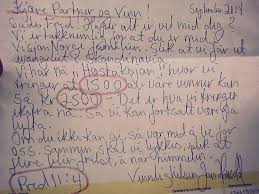 Kjære Partner og Venn! September 2014
Guds Fred. Håper alt er vel med deg?
Vi er takknemlig for at du er med i
Visjon Norge familien. Slik at vi får ut
i Skandinavia.
Vi har nå "Høstaksjon" hvor vi
trenger at 1500 av våre venner kan
gi kr 2500. Det er hva vi trenger
ekstra nå. Så vi kan fortsatt være på
lufta.
Om du ikke kan gi, så vær med å be for
oss. Sammen skal vi lykkes, slik at
flere blir frelst, å når himmelen.
Vennlig hilsen